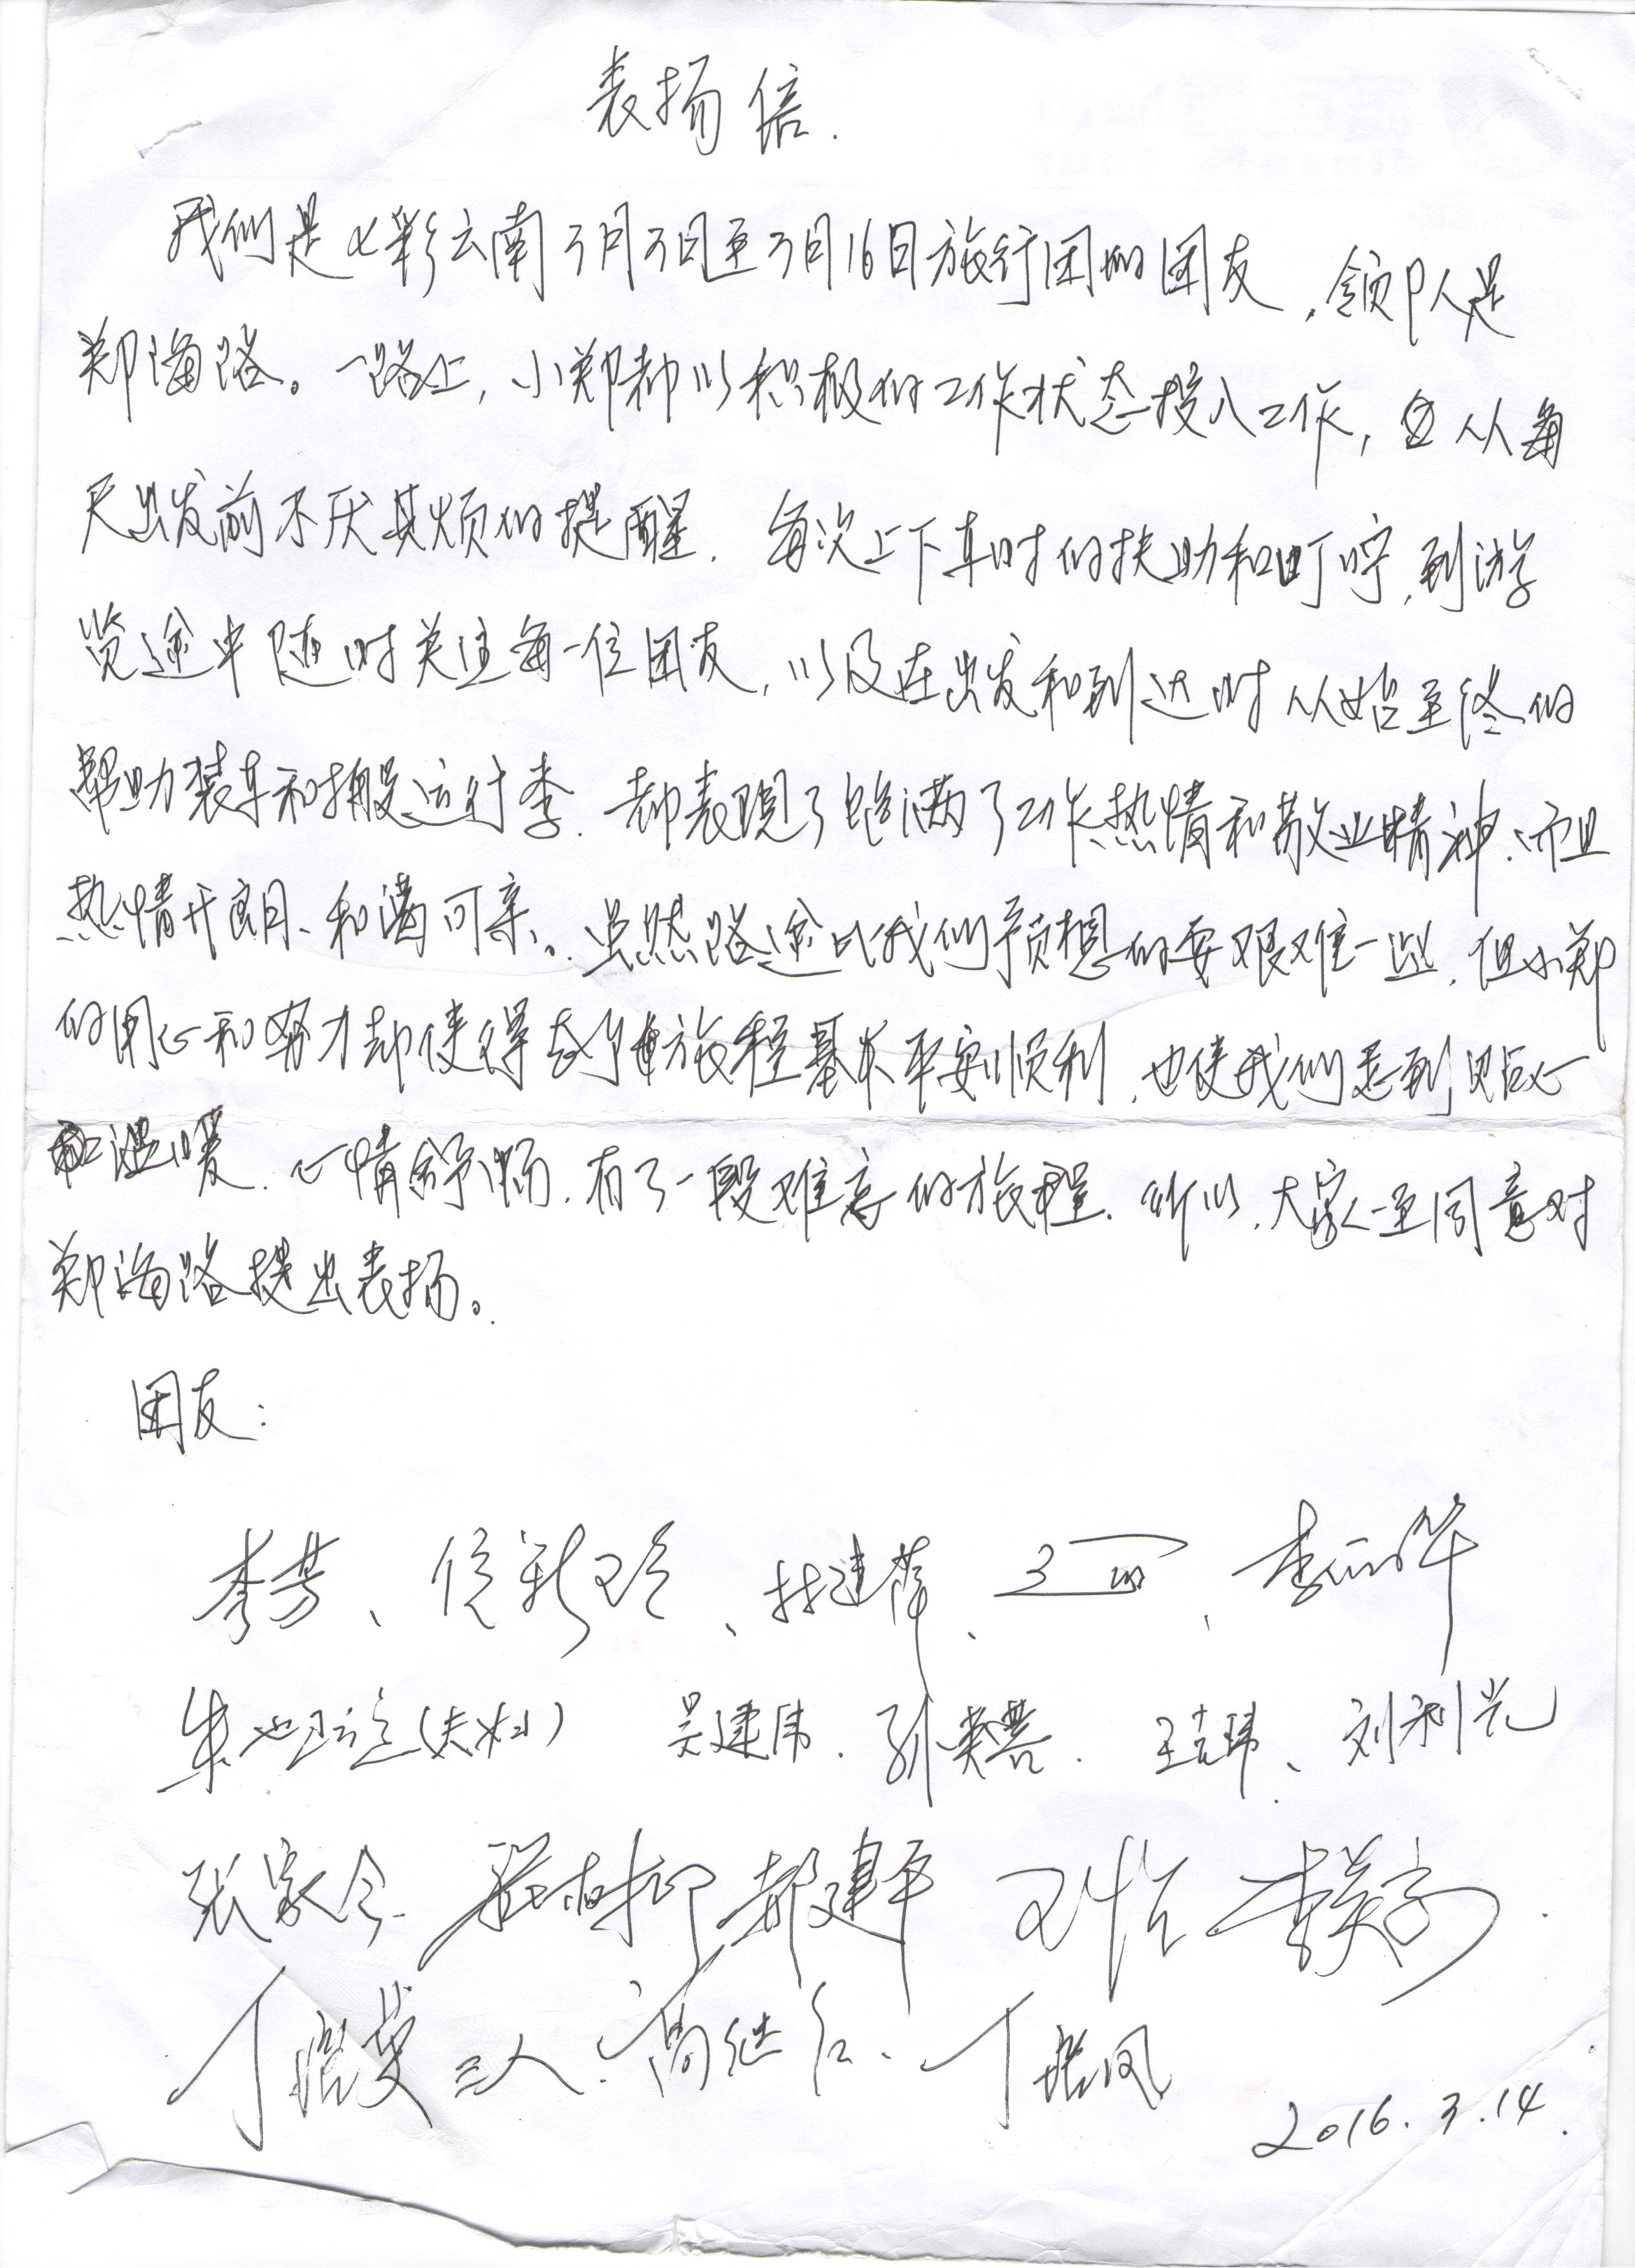 表扬信.
我们是七彩云南3月3日至3月16日旅行团的团友,领队人是
郑海路。一路上,小郑都以积极的工作状态投入工作,从每
天出发前不厌其烦的提醒.每次上下车时的扶助和叮咛,到游
览途中随时关注每一位团友,以及在出发和到达时从始至终的
帮助装车和搬运行李.都表现了饱满了工作热情和敬业精神.而且
热情开朗、和蔼可亲。虽然路途比我们预想的要艰难一些.但小郑
的用心和努力却使得旅程基本平安顺利,也使我们感到贴心
和温暖.心情舒畅.有了一段难忘的旅程.所以.大家一至同意对
郑海路提出表扬。
团友:
李芳、
(夫妇) 吴建伟.孙英 .王吉玮、刘利光
张家 郝建平 王
丁 英三人.高继 .丁 凤
2016.3.14.